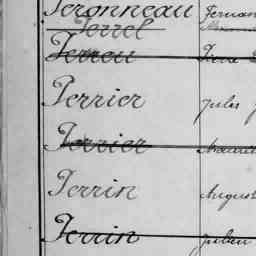 Peronneau Fernan
Perrel
Perreu
Perrier Jules
Perrier Mauric
Perrin August
Perrin Julien